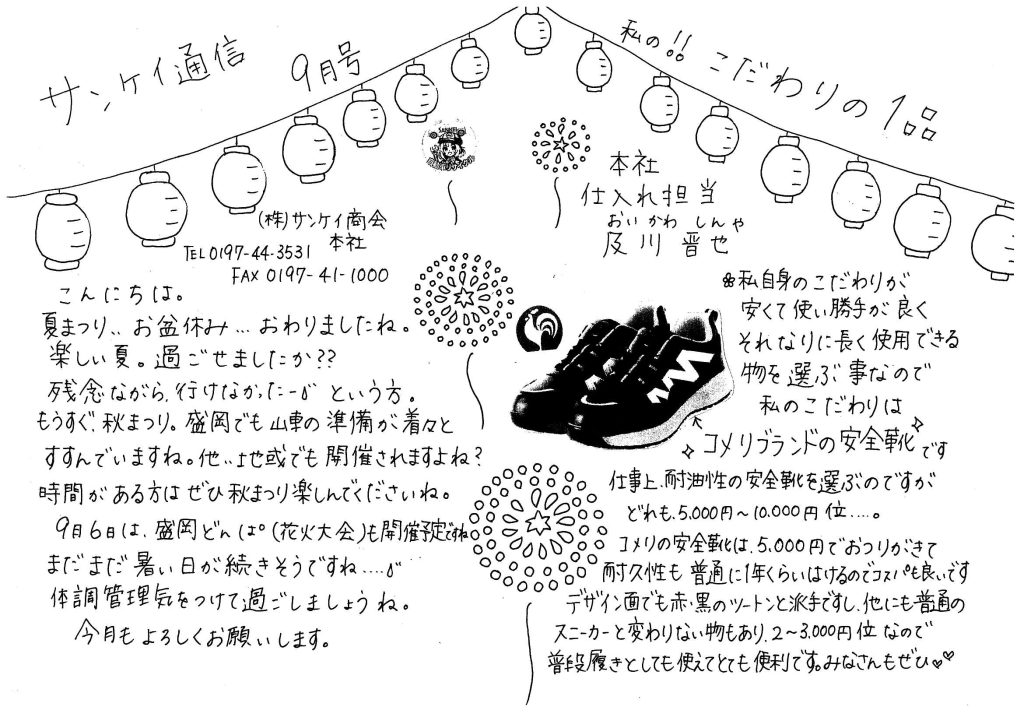 サンケイ通信 9月号
(株)サンケイ商会
本社
TEL 0197-44-3531
FAX 0197-41-1000
こんにちは。
夏まつり、、お盆休み…おわりましたね。
楽しい夏。過ごせましたか??
残念ながら、行けなかったーという方。
もうすぐ、秋まつり。盛岡でも山車の準備が着々と
すすんでいますね。他、、地域でも開催されますよね?
時間がある方はぜひ秋まつり楽しんでくださいね。
9月6日は、盛岡どんぱ(花火大会)も開催予定ですね
まだまだ暑い日が続きそうですね....
体調管理気をつけて過ごしましょうね。
今月もよろしくお願いします。
私の!! こだわりの1品
本社
仕入れ担当
おいかわ しんや
及川 晋也
❀私自身のこだわりが
安くて使い勝手が良く
それなりに長く使用できる
物を選ぶ事なので
私のこだわりは
コメリブランドの安全靴です
仕事上、耐油性の安全靴を選ぶのですが
どれも、5.000円〜10.000円位....。
コメリの安全靴は、5.000円でおつりがきて
耐久性も普通に1年くらいはけるのでコスパも良いです
デザイン面でも赤・黒のツートンと派手ですし、他にも普通の
スニーカーと変わりない物もあり、2〜3.000円位なので
普段履きとしても使えてとても便利です。みなさんもぜひ♥♥